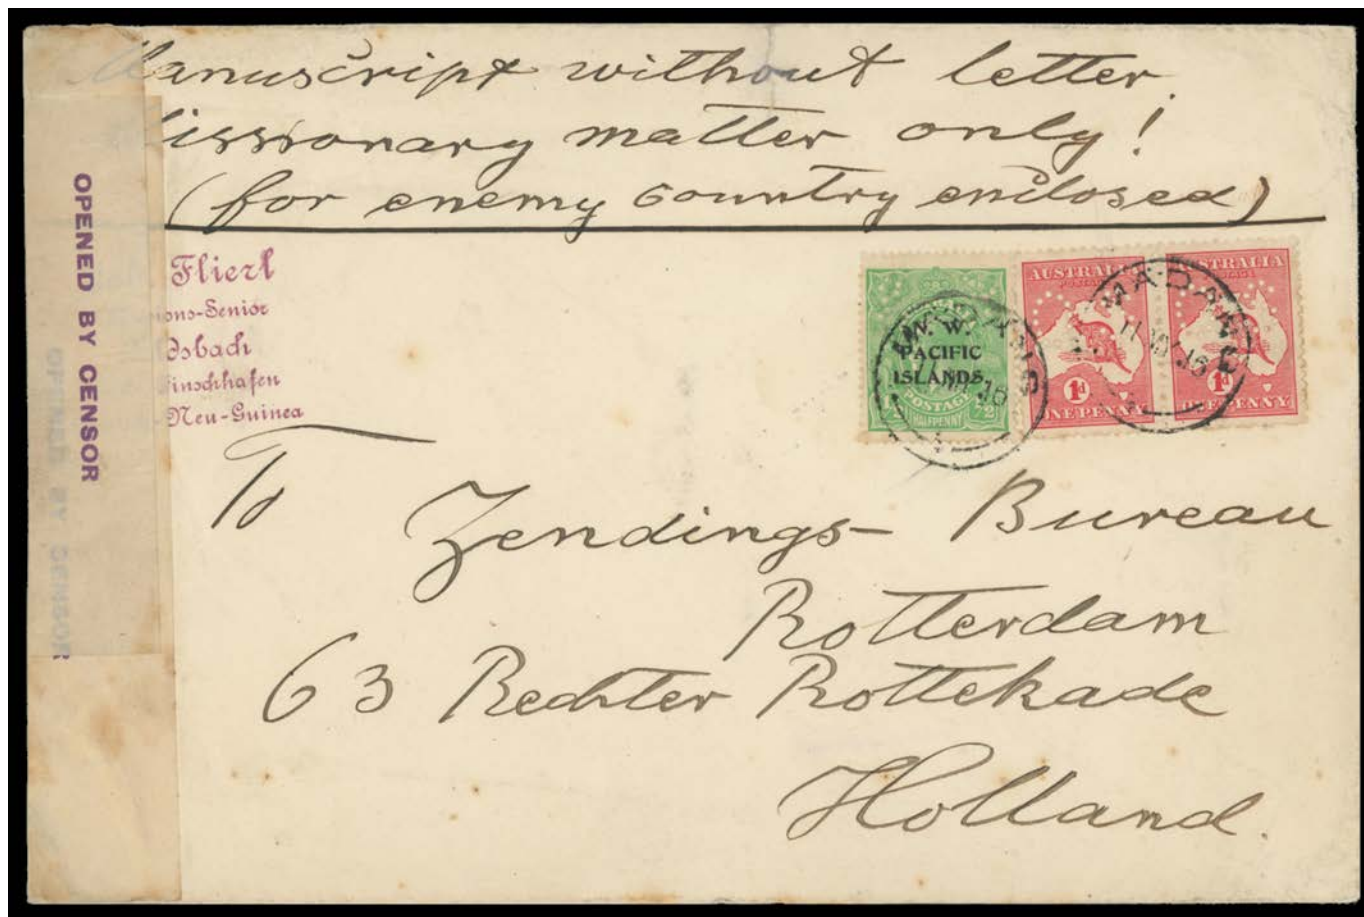 Manuscript without letter.
Missionary matter only!
(for enemy country enclosed)
OPENED BY CENSOR
OPENED BY CENSOR
Flierl
ons-Senior
dsbach
inschhafen
-Neu-Guinea
N. W.
PACIFIC
ISLANDS.
POSTAGE
HALFPENNY
AUSTRALIA
POSTAGE
1d
ONE PENNY
AUSTRALIA
POSTAGE
1d
ONE PENNY
MADANG
MADANG
To
Zendings-Bureau
Rotterdam
63 Rechter Rottekade
Holland.